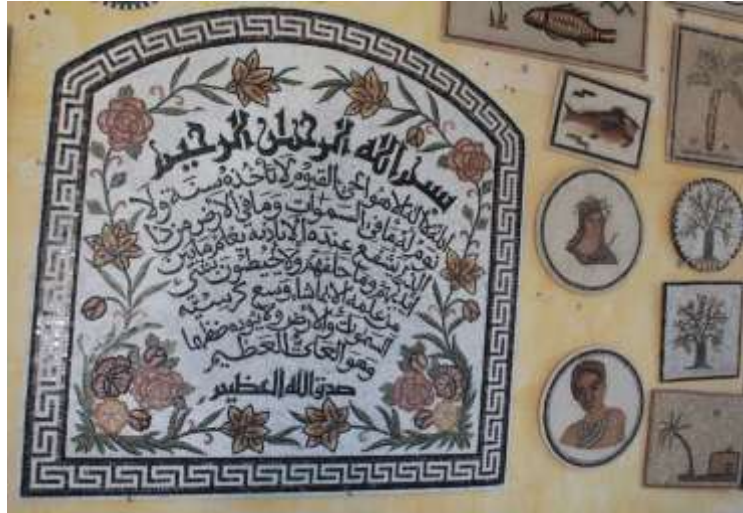 بسم الله الرحمن الرحيم
الله لا اله الا هو الحي القيوم لا تأخذه سنة ولا
نوم له ما في السموات وما في الأرض من ذا
الذي يشفع عنده الا باذنه يعلم ما بين
أيديهم وما خلفهم ولا يحيطون بشيء
من علمه الا بما شاء وسع كرسيه
السموات والارض ولا يئوده حفظهما
وهو العلي العظيم
صدق الله العظيم